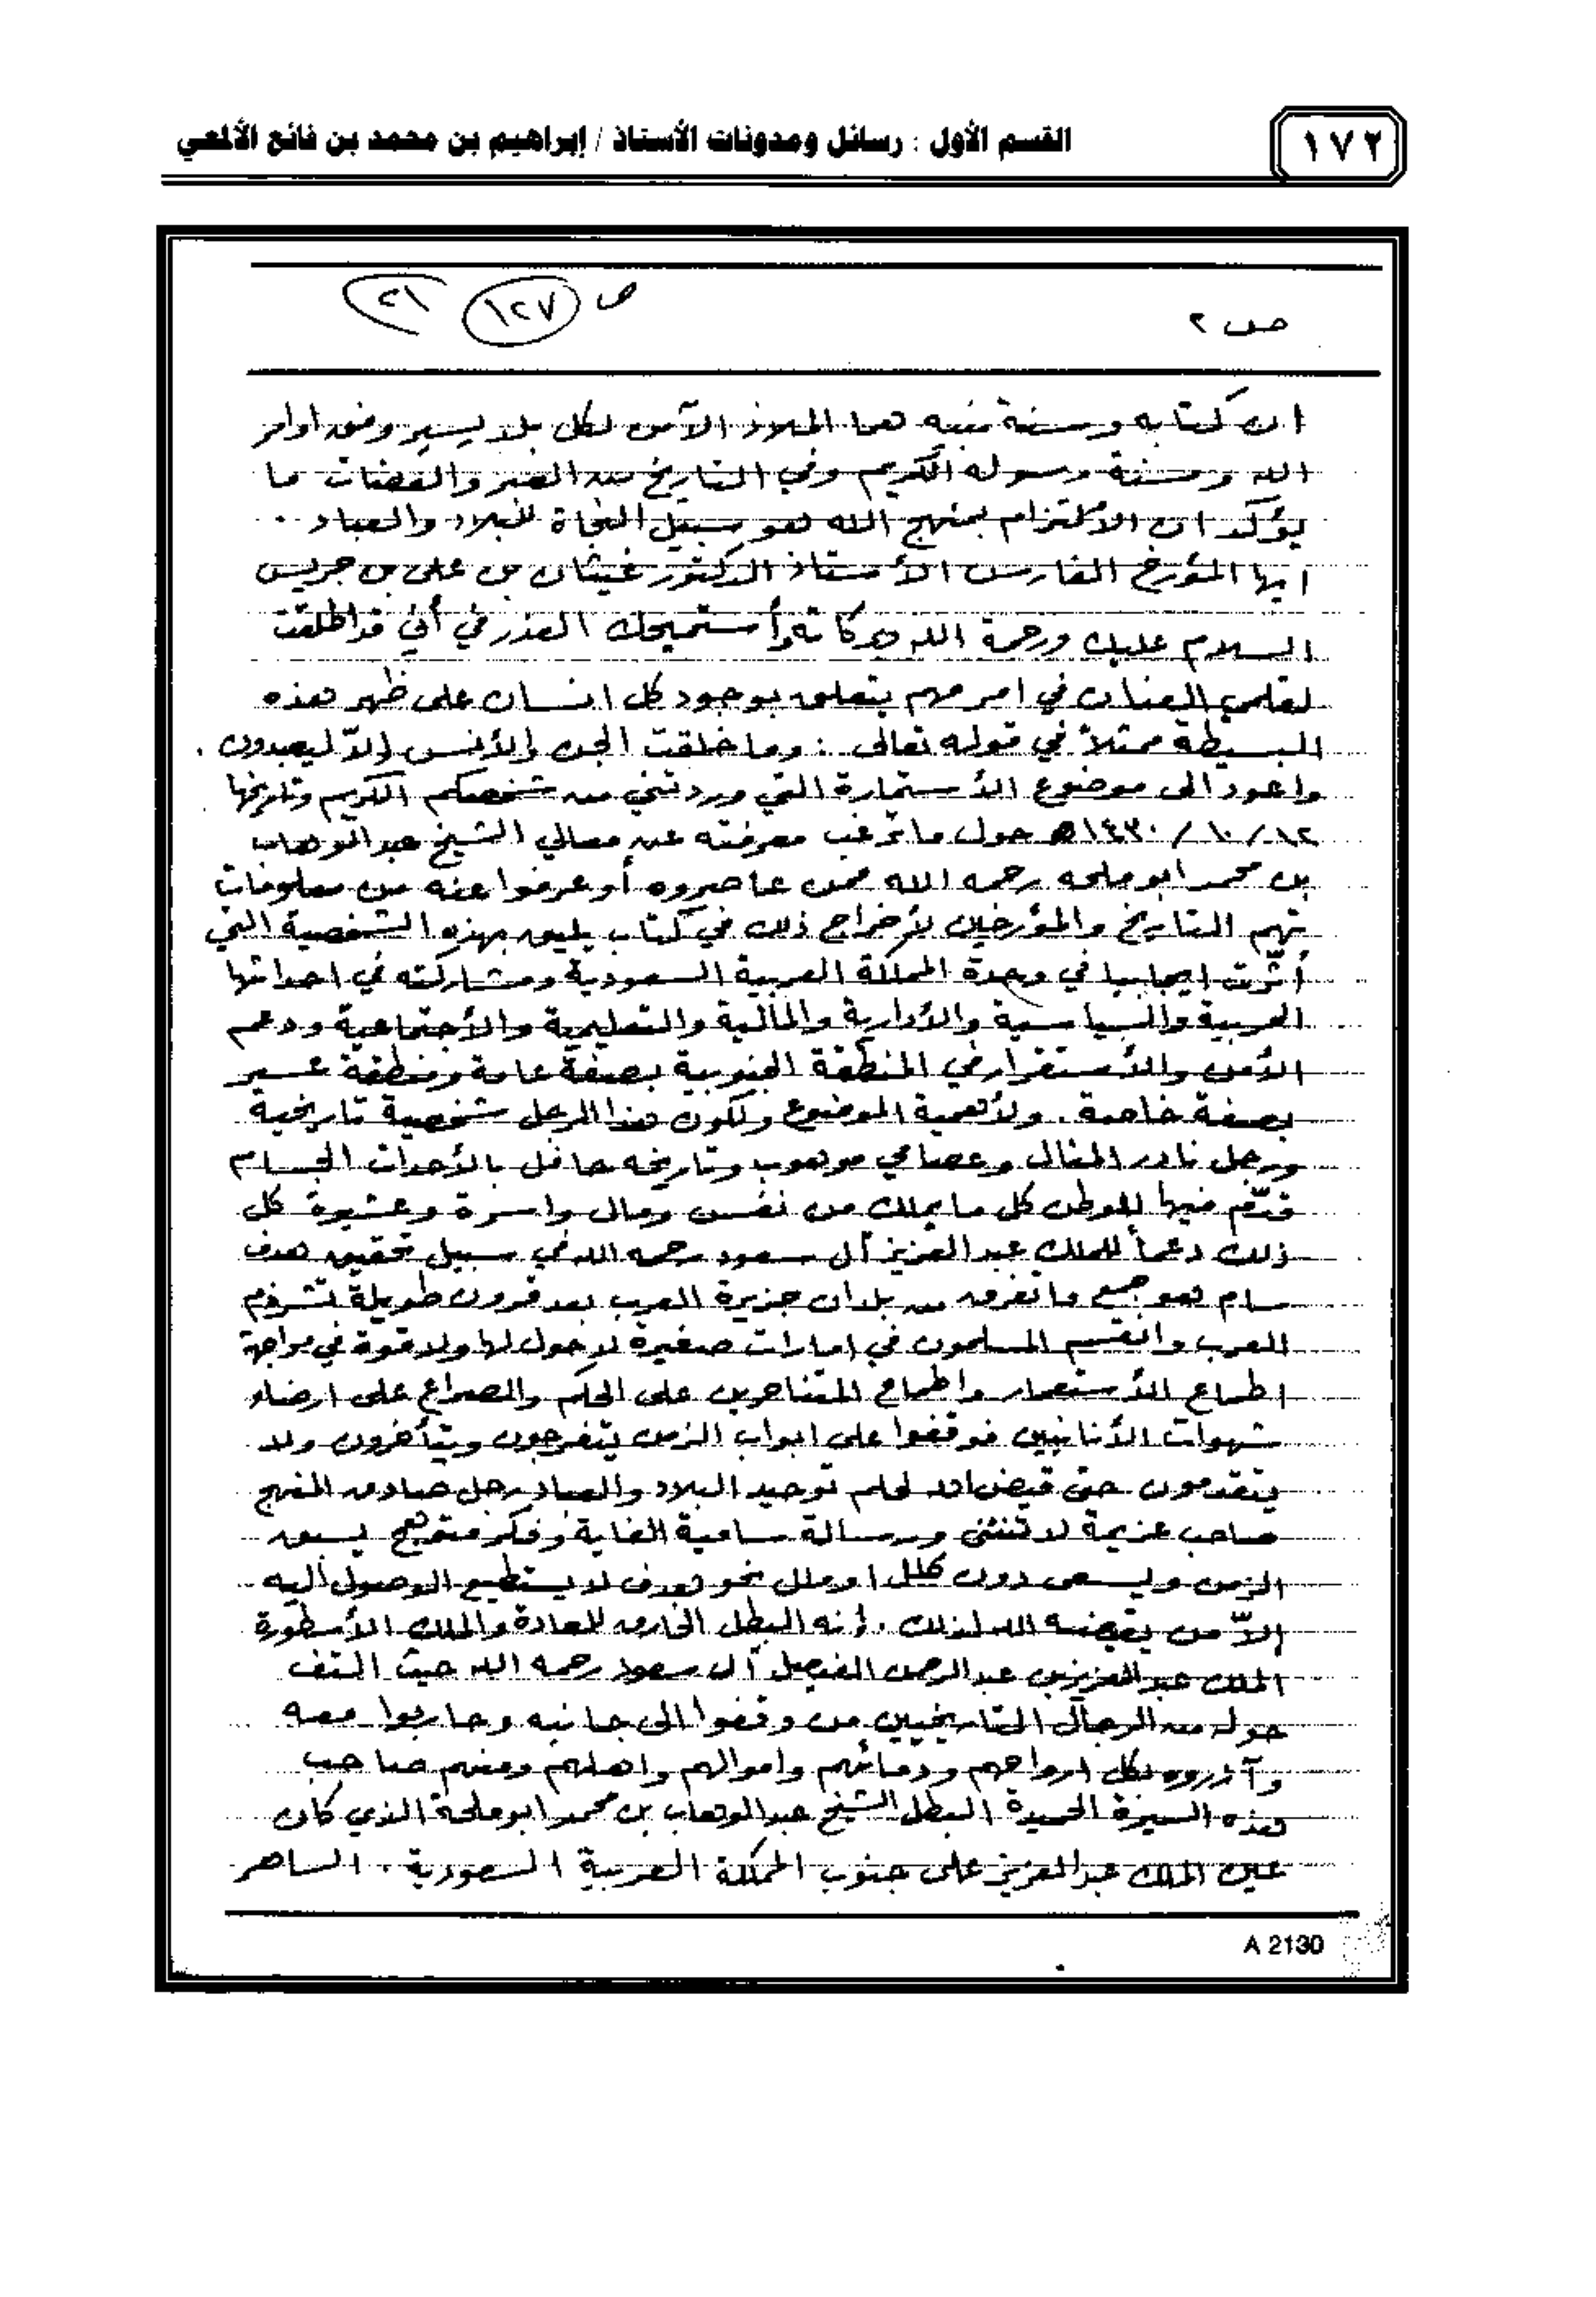 ١٧٢
القسم الأول : رسائل ومدونات الأستاذ / إبراهيم بن محمد بن فائع الألمعي
ص ٢
ص ١٢٧
٢١
ان كتابه وسنة نبيه هما الملاذ الآمن لكل بلد يسير وفق اوامر
الله وسنة رسوله الكريم وفي التاريخ من العبر والعضات ما
يؤكد ان الألتزام بمنهج الله هو سبيل النجاة للبلاد والعباد ..
ايها المؤرخ الفارس الأستاذ الدكتور غيثان بن علي بن جريس
السلام عليك ورحمة الله وبركاته وأستميحك العذر في أني قد اطلقت
لقلمي العنان في امر مهم يتعلق بوجود كل انسان على ظهر هذه
البسيطة ممثلاً في قوله تعالى : وما خلقت الجن والأنس إلاّ ليعبدون .
واعود الى موضوع الأستمارة التي وردتني من شخصكم الكريم وتاريخها
١٢/ ١٠/ ١٤٣٠هـ حول ما ترغب معرفته عن معالي الشيخ عبدالوهاب
بن محمد ابو ملحه رحمه الله ممن عاصروه أو عرفوا عنه من معلومات
تهم التاريخ والمؤرخين لأخراج ذلك في كتاب يليق بهذه الشخصية التي
أثّرت ايجابيا في وحدة المملكة العربية السعودية ومشاركته في احداثها
الحربية والسياسية والأدارية والمالية والتعليمية والأجتماعية ودعم
الأمن والأستقرار في المنطقة الجنوبية بصفة عامة ومنطقة عسير
بصفة خاصة . ولأهمية الموضوع ولكون هذا الرجل شخصية تاريخية
ورجل نادر المثال وعصامي موهوب وتاريخه حافل بالأحداث الجسام
قدّم فيها للوطن كل ما يملك من نفس ومال واسرة وعشيرة كل
ذلك دعماً للملك عبدالعزيز آل سعود رحمه الله في سبيل تحقيق هدف
سام هو جمع ما تفرق من بلدان جزيرة العرب بعد قرون طويلة تشرذم
العرب وانقسم المسلمون في امارات صغيرة لا حول لها ولا قوة في مواجهة
اطماع الأستعمار واطماع المتناحرين على الحكم والصراع على ارضاء
شهوات الأنانيين فوقفوا على ابواب الزمن يتفرجون ويتأخرون ولا
يتقدمون حتى قيض الله لحلم توحيد البلاد والعباد رجل صادق المنهج
صاحب عزيمة لا تنثني ورسالة سامية الغاية وفكر متوهج يسبق
الزمن ويسعى دون كلل او ملل نحو هدف لا يستطيع الوصول أليه
إلاّ من يقيضه الله لذلك . إنه البطل الخارق للعادة والملك الأسطورة
الملك عبدالعزيز بن عبدالرحمن الفيصل آل سعود رحمه الله حيث التف
حوله من الرجال التاريخيين من وقفوا الى جانبه وحاربوا معه
وآزروه بكل ارواحهم ودمائهم واموالهم واهلهم ومنهم صاحب
هذه السيرة الحميدة البطل الشيخ عبدالوهاب بن محمد ابو ملحة الذي كان
عين الملك عبدالعزيز على جنوب المملكة العربية السعودية . الساهر
A 2130